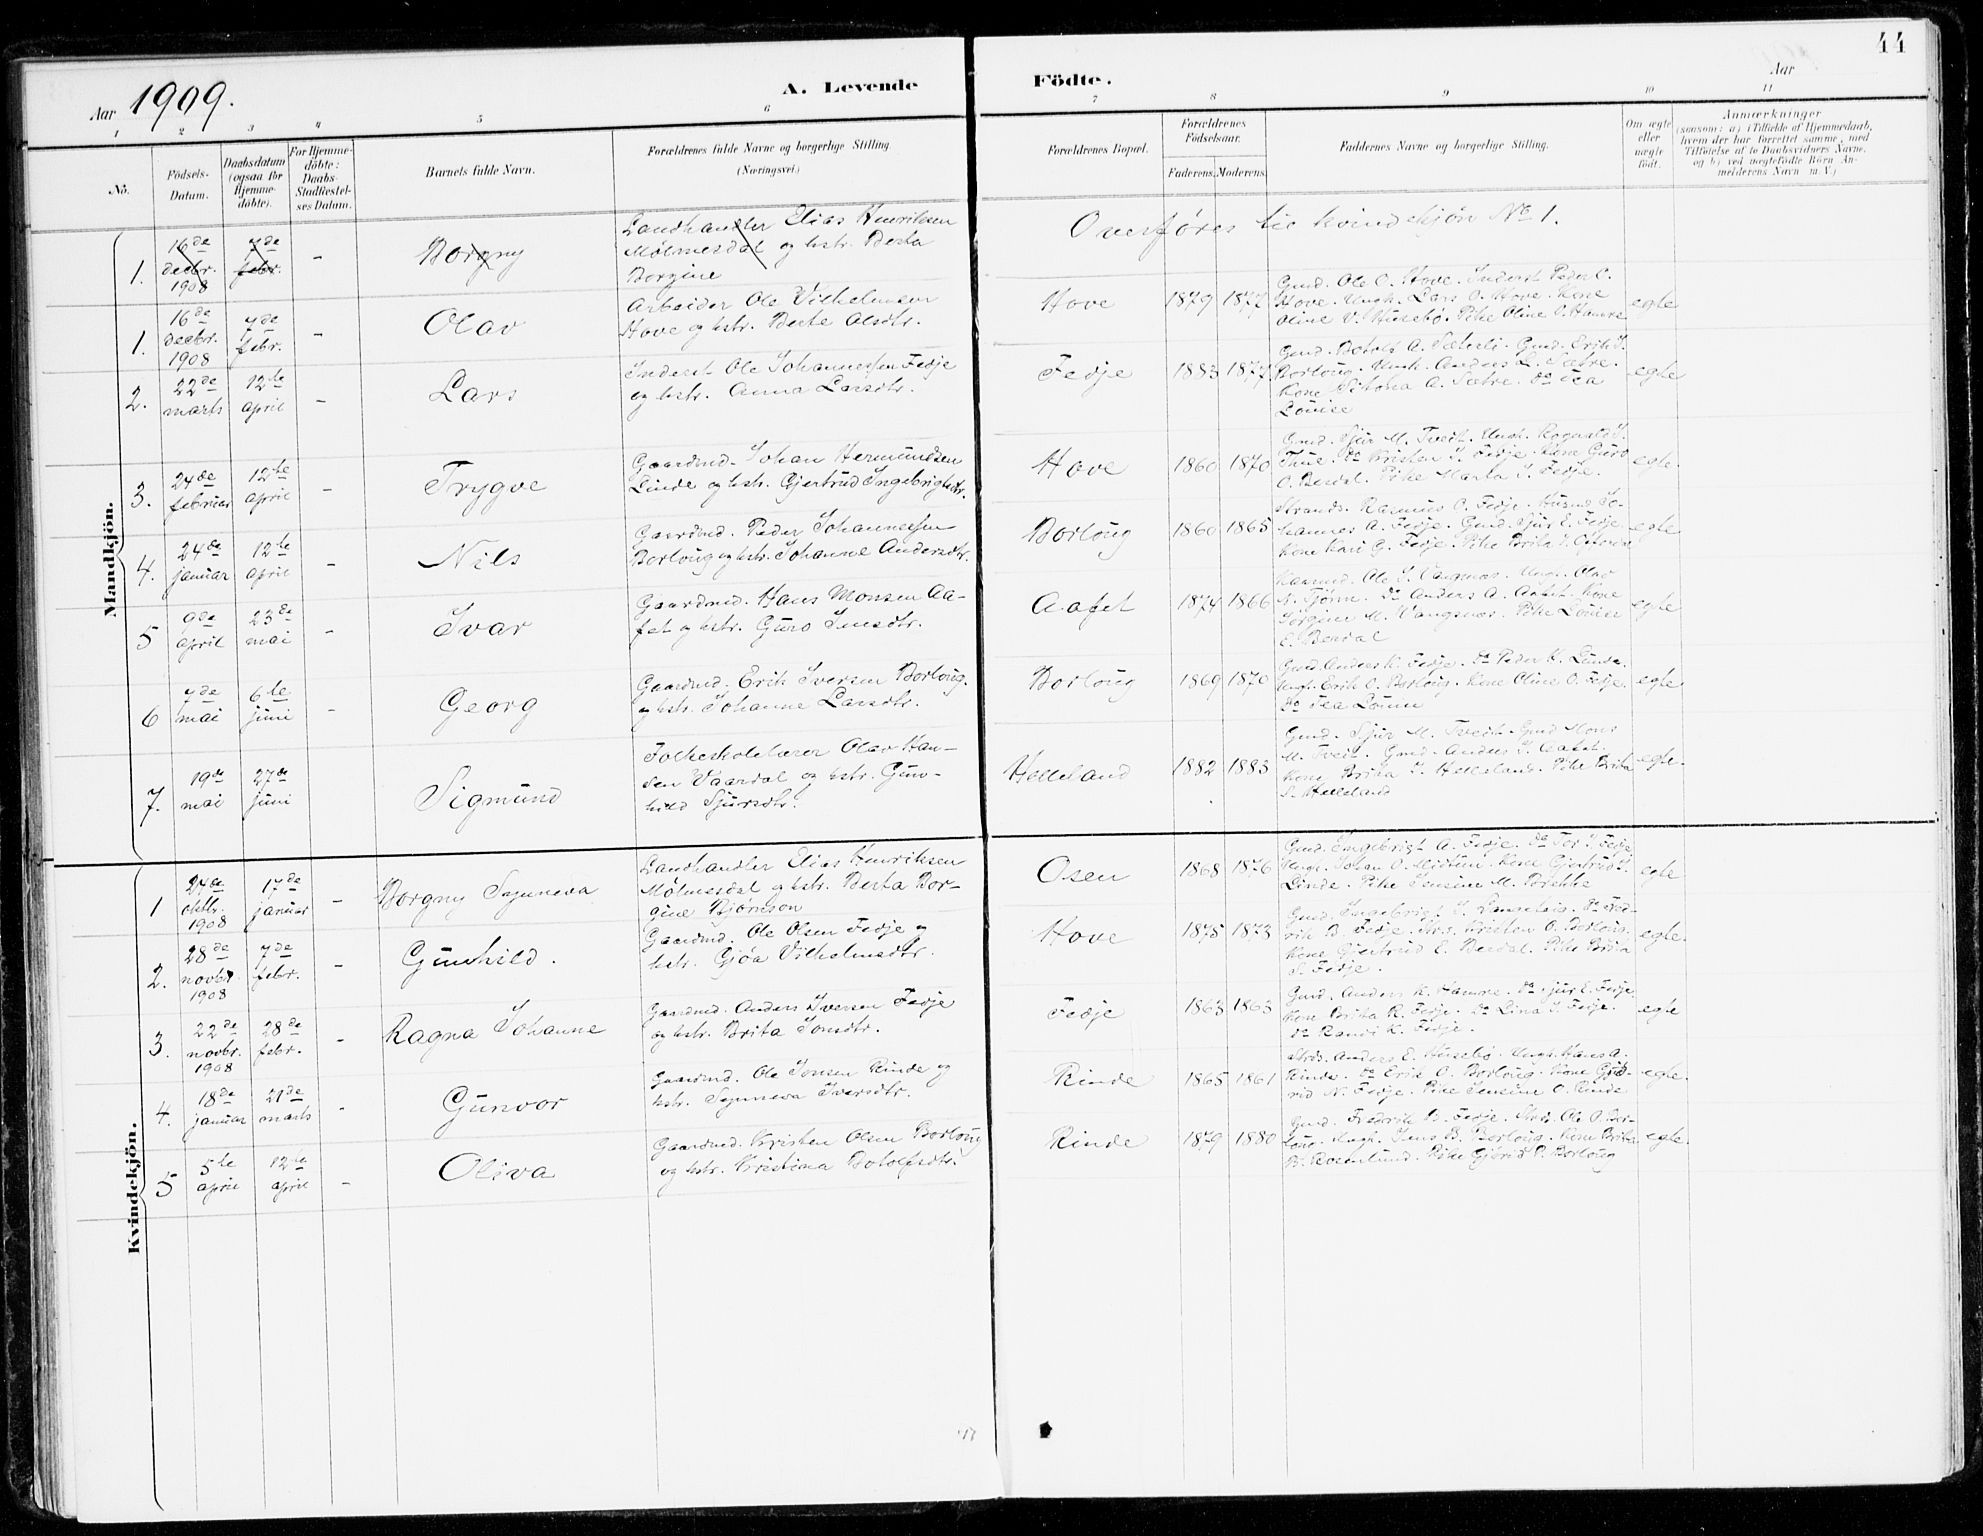 44
Aar 1909.
A. Levende Födte.
Aar
1 2 3 4 5 6 7 8 9 10 11
No.
Födsels-
Datum.
Daabsdatum
(ogsaa for
Hjemme-
döbte).
For Hjemme-
döbte:
Daabs-
Stadfæstel-
ses Datum.
Barnets fulde Navn.
Forældrenes fulde Navne og borgerlige Stilling
(Næringsvei.)
Forældrenes Bopæl.
Forældrenes
Födselsaar.
Faderens. Moderens.
Faddernes Navne og borgerlige Stilling.
Om ægte
eller
uægte
født.
Anmærkninger
(saasom: a) i Tilfælde af Hjemmedaab,
hvem der har forrettet samme, med
Tilföielse af to Daabsvidners Navne,
og b) ved uægtefödte Börn An-
melderens Navn m. V.)
Mandkjön.
1. 16de decbr. 1908 7de febr. - Borgny
Landhandler Elias Henriksen
Mølmesdal og hstr. Berta
Borgine
Overføres til kvindekjøn No 1.
1. 16de decbr. 1908 7de febr. - Olav
Arbeider Ole Vilhelmsen
Hove og hstr. Berte Olsdtr.
Hove 1879 1877
Gmd. Ole O. Hove. Inderst Peder O.
Hove. Ungk. Lars O. Hove. Kone
Oline V. Husebø. Pike Oline O. Hamre
egte
2. 22de marts 12te april - Lars
Inderst Ole Johannessen Fedje
og hstr. Anna Larsdtr.
Fedje 1883 1877
Gmd. Botolf A. Sæterli. Gmd. Erik I.
Borloug. Ungk. Anders L. Sætre.
Kone A. Sætre. do Tea
Louise
egte
3. 24de februar 12te april - Trygve
Gaardmd. Johan Hermundsen
Linde og hstr. Gjertrud Ingebrigtsdtr.
Hove 1860 1870
Gmd. Sjur M. Tveit. Ungk. Rognald
do Kristen I. Fedje. Kone Guro
O. Bendal. Pike Marta I. Fedje.
egte.
4. 24de januar 12te april - Nils
Gaardmd. Peder Johannessen
Borloug og hstr. Johanne Andersdtr.
Borloug 1860 1865
Strands. Rasmus O. Fedje. Husmd Jo-
hannes A. Fedje. Gmd. Sjur E. Fedje
Kone Kari G. Fedje. Pike Brita I.
egte
5 9de april 23de mai - Ivar
Gaardmd. Hans Monsen Aa-
fet og hstr. Guro Jensdtr.
Aafet 1874 1866
Ole I. Vangsnes. Ungk. Olav
N. Tjørn. do Anders A. Aafet. Kone
Jørgine M. Vangsnes. Pike Louise
E. Bendal
egte
6 7de mai 6te juni - Georg
Gaardmd. Erik Iversen Borloug.
og hstr. Johanne Larsdtr.
Borloug 1869 1870
Gmd. Anders K. Fedje. do Peder K. Linde.
Ungk. Erik O. Borloug. Kone Oline O. Fedje.
do Tea Louise
egte.
7. 19de mai 27de juni Sigmund
Folkeskolelærer Olav Han-
sen Vaardal og hstr. Gun-
hild Sjursdtr.
Helleland 1882 1883
Gmd. Sjur M. Tveit. Gmd Mons
M. Tveit. Gmd. Anders I. Aafet.
Kone Brita I. Helleland. Pike Brita
S. Helleland
egte.
Kvindekjön.
1 24de oktbr. 1908 17de januar - Borgny Synneva
Landhandler Elias Henriksen
Mølmesdal og hstr. Berta Bor-
gine Bjørnson
Osen 1868 1876
Gmd. Engebrigt A. Fedje. do Tor I. Fedje
Ungk. Johan O. Midtun. Kone Gjertrud I.
Linde. Pike Jensine M. Brekke
egte
2. 28de novbr 1908 7de febr. - Gunhild.
Gaardmd. Ole Olsen Fedje og
hstr. Gjøa Vilhelmsdtr.
Hove 1875 1873
Gmd. Ingebrigt I. do Fred-
rik B. Fedje. Kristen O. Borloug.
Kone Gjertrud E. Bendal. Pike Brita
S. Fedje.
egte.
3. 22de novbr. 1908 28de febr. - Ragna Johanne
Gaardmd. Anders Iversen Fedje
og hstr. Brita Jonsdtr.
Fedje 1863 1863
Gmd. Anders K. Hamre. do Sjur E. Fedje
Kone Brita R. Fedje. do Lina I. Fedje.
do Randi K. Fedje.
egte
4. 18de januar 21de marts - Gunvor
Gaardmd. Ole Jonsen Rinde og
hstr. Synneva Iversdtr.
Rinde 1865 1861
Anders E. Husebø. Ungk. Hans A.
Rinde. do Erik O. Borloug. Kone Gjid-
rid N. Fedje. Pike Jensine O. Rinde
egte.
5 5te april 12te april - Oliva
Gaardmd. Kristen Olsen Borloug
og hstr. Kristina Botolfsdtr.
Rinde 1879 1880
Gmd. Fredrik B. Fedje. Ole O. Bor-
loug. Ungk. Jens B. Borloug. Kone Brita
B. Rosenlund. Pike Gjörid P. Borloug
egte.